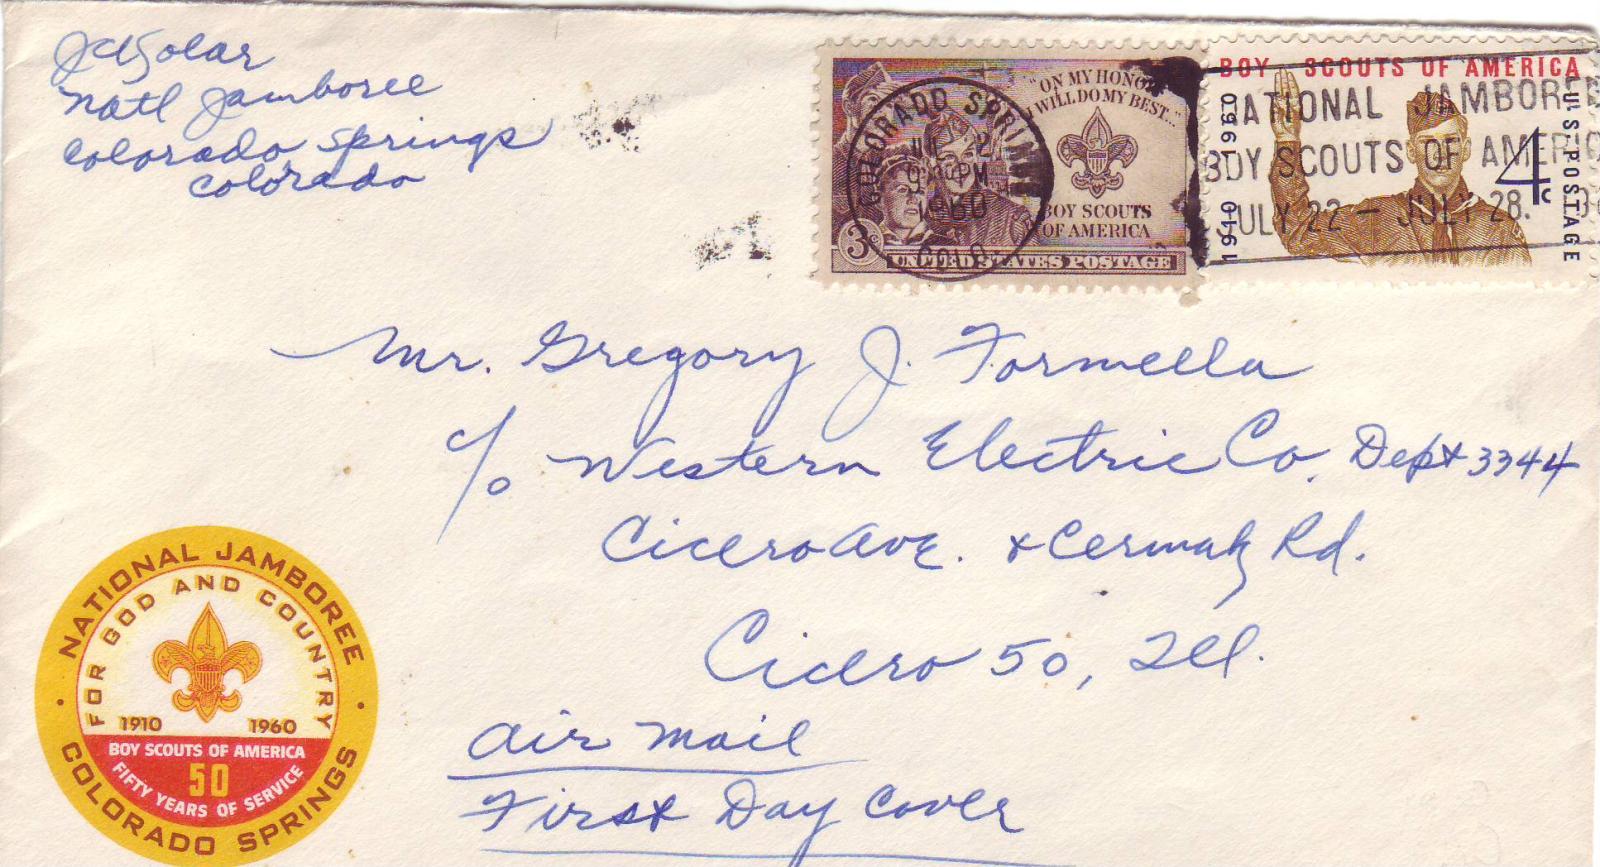 JCSolar
Natl Jamboree
Colorado Springs
Colorado
"ON MY HONOR
I WILL DO MY BEST..."
BOY SCOUTS
OF AMERICA
3¢
UNITED STATES POSTAGE
COLORADO SPRINGS
2
PM
1960
COLO.
BOY SCOUTS OF AMERICA
1910 1960
4c
U.S. POSTAGE
NATIONAL JAMBOREE
BOY SCOUTS OF AMERICA
JULY 22 - JULY 28.
Mr. Gregory J. Formella
c/o Western Electric Co. Dept 3344
Cicero Ave. & Cermak Rd.
Cicero 50, Ill.
Air Mail
First Day Cover
NATIONAL JAMBOREE
FOR GOD AND COUNTRY
1910 1960
BOY SCOUTS OF AMERICA
50
FIFTY YEARS OF SERVICE
COLORADO SPRINGS